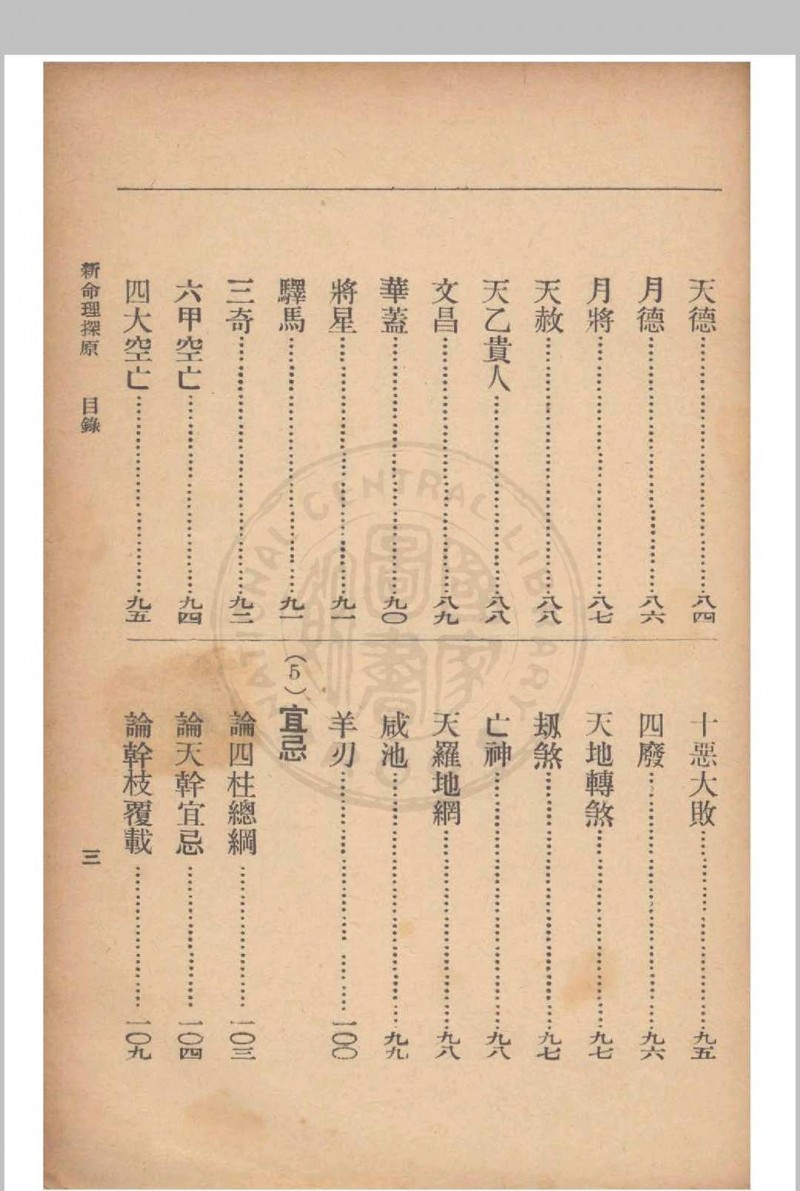 天德……八四
月德……八六
月將……八七
天赦……八八
天乙貴人……八八
文昌……八九
華蓋……九〇
將星……九一
驛馬……九一
三奇……九二
六甲空亡……九四
四大空亡……九五
十惡大敗……九五
四廢……九六
天地轉煞……九七
刼煞……九七
亡神……九八
天羅地網……九八
咸池……九九
羊刃……一〇〇
（5）宜忌
論四柱總綱……一〇三
論天幹宜忌……一〇四
論幹枝覆載……一〇九
新命理探原 目錄 三
NATIONAL CENTRAL LIBRARY
國家圖書館